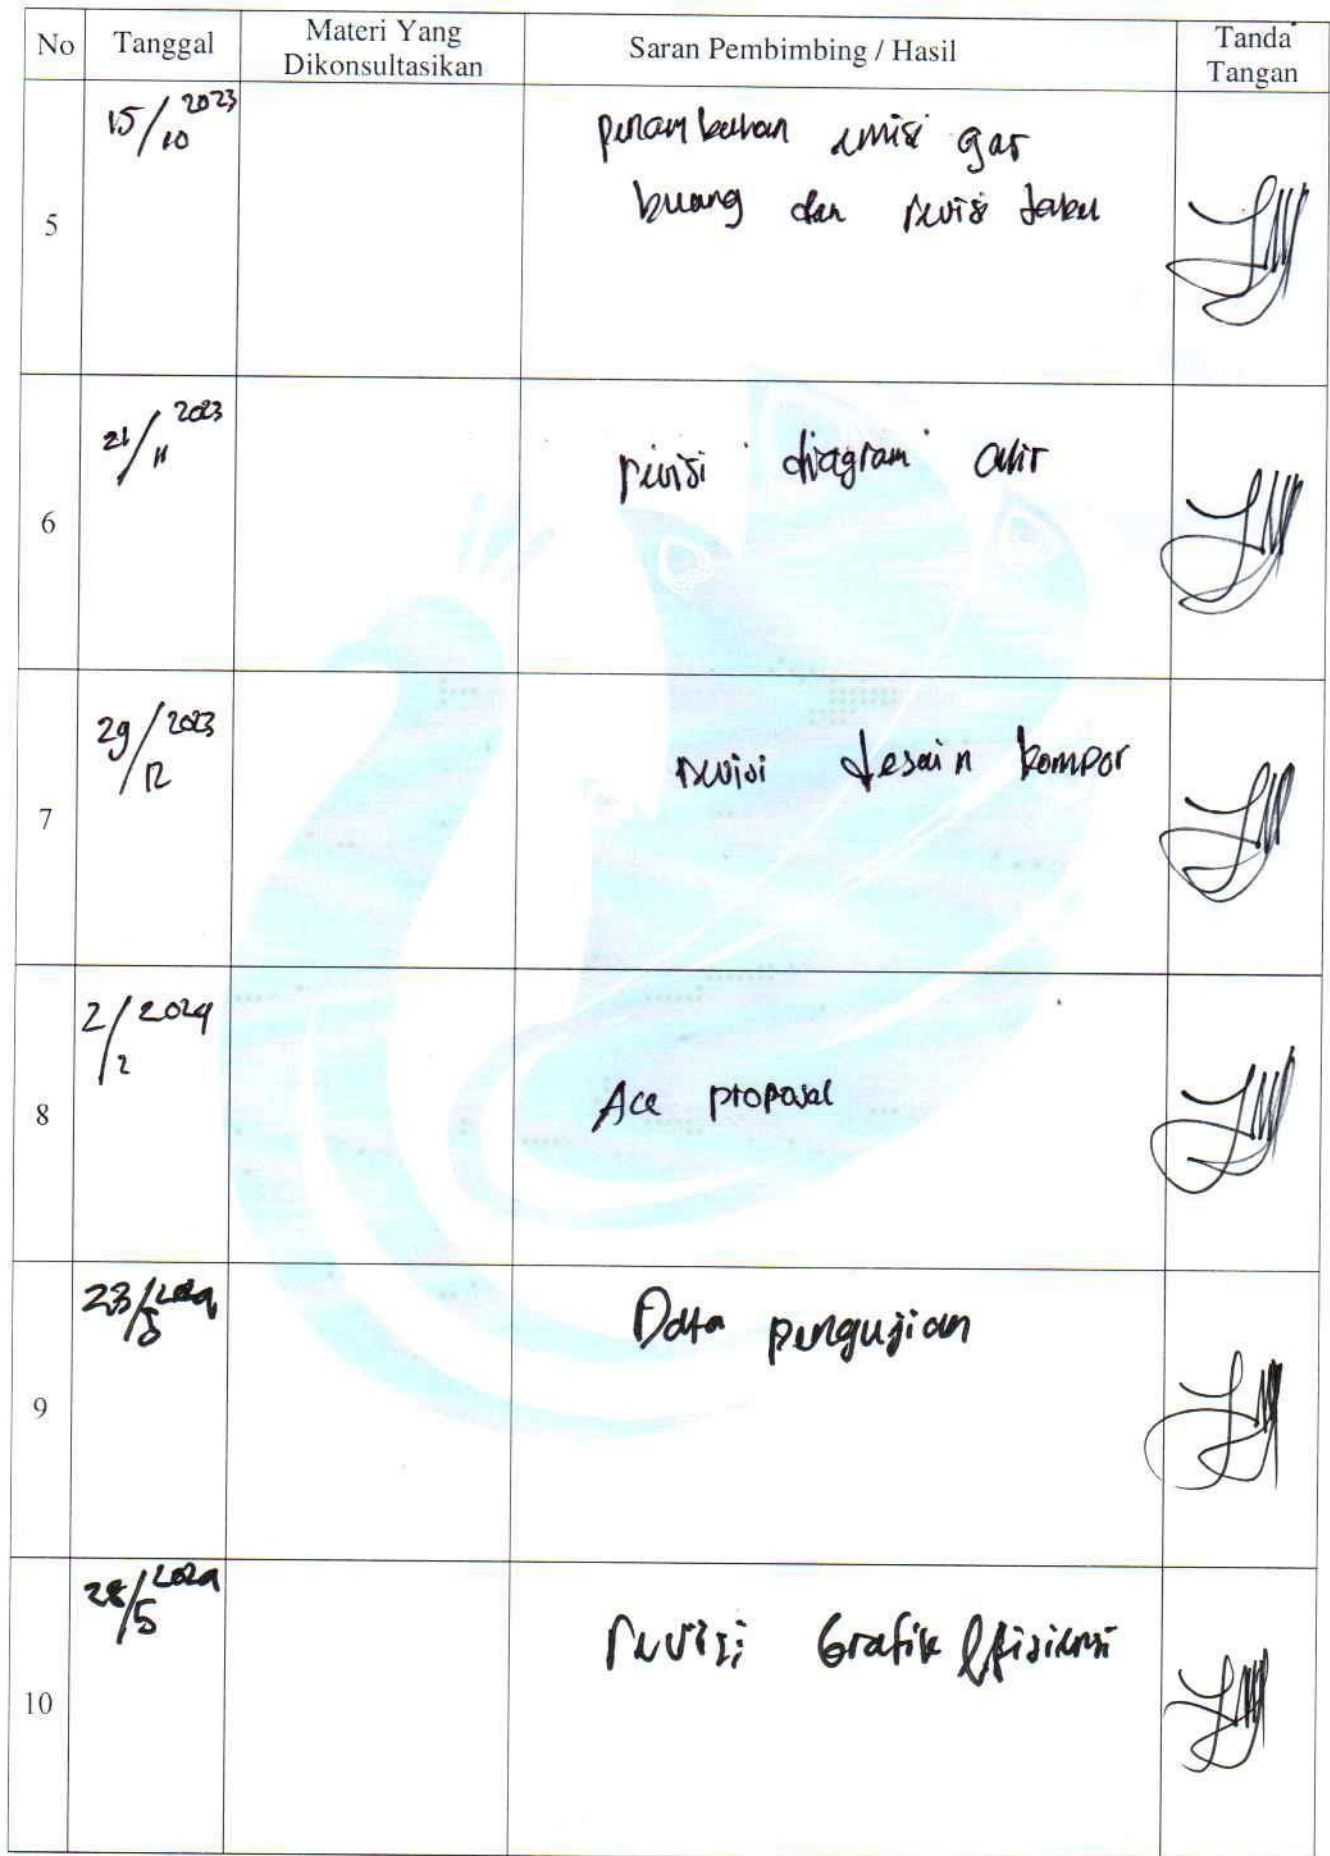 No Tanggal Materi Yang Dikonsultasikan Saran Pembimbing / Hasil Tanda Tangan
5 15/10 2023 penambahan emisi gas
buang dan revisi tabel
6 21/11 2023 revisi diagram alir
7 29/12 2023 revisi desain kompor
8 2/2 2024 Acc proposal
9 23/5 2024 Data pengujian
10 28/5 2024 revisi Grafik efisiensi